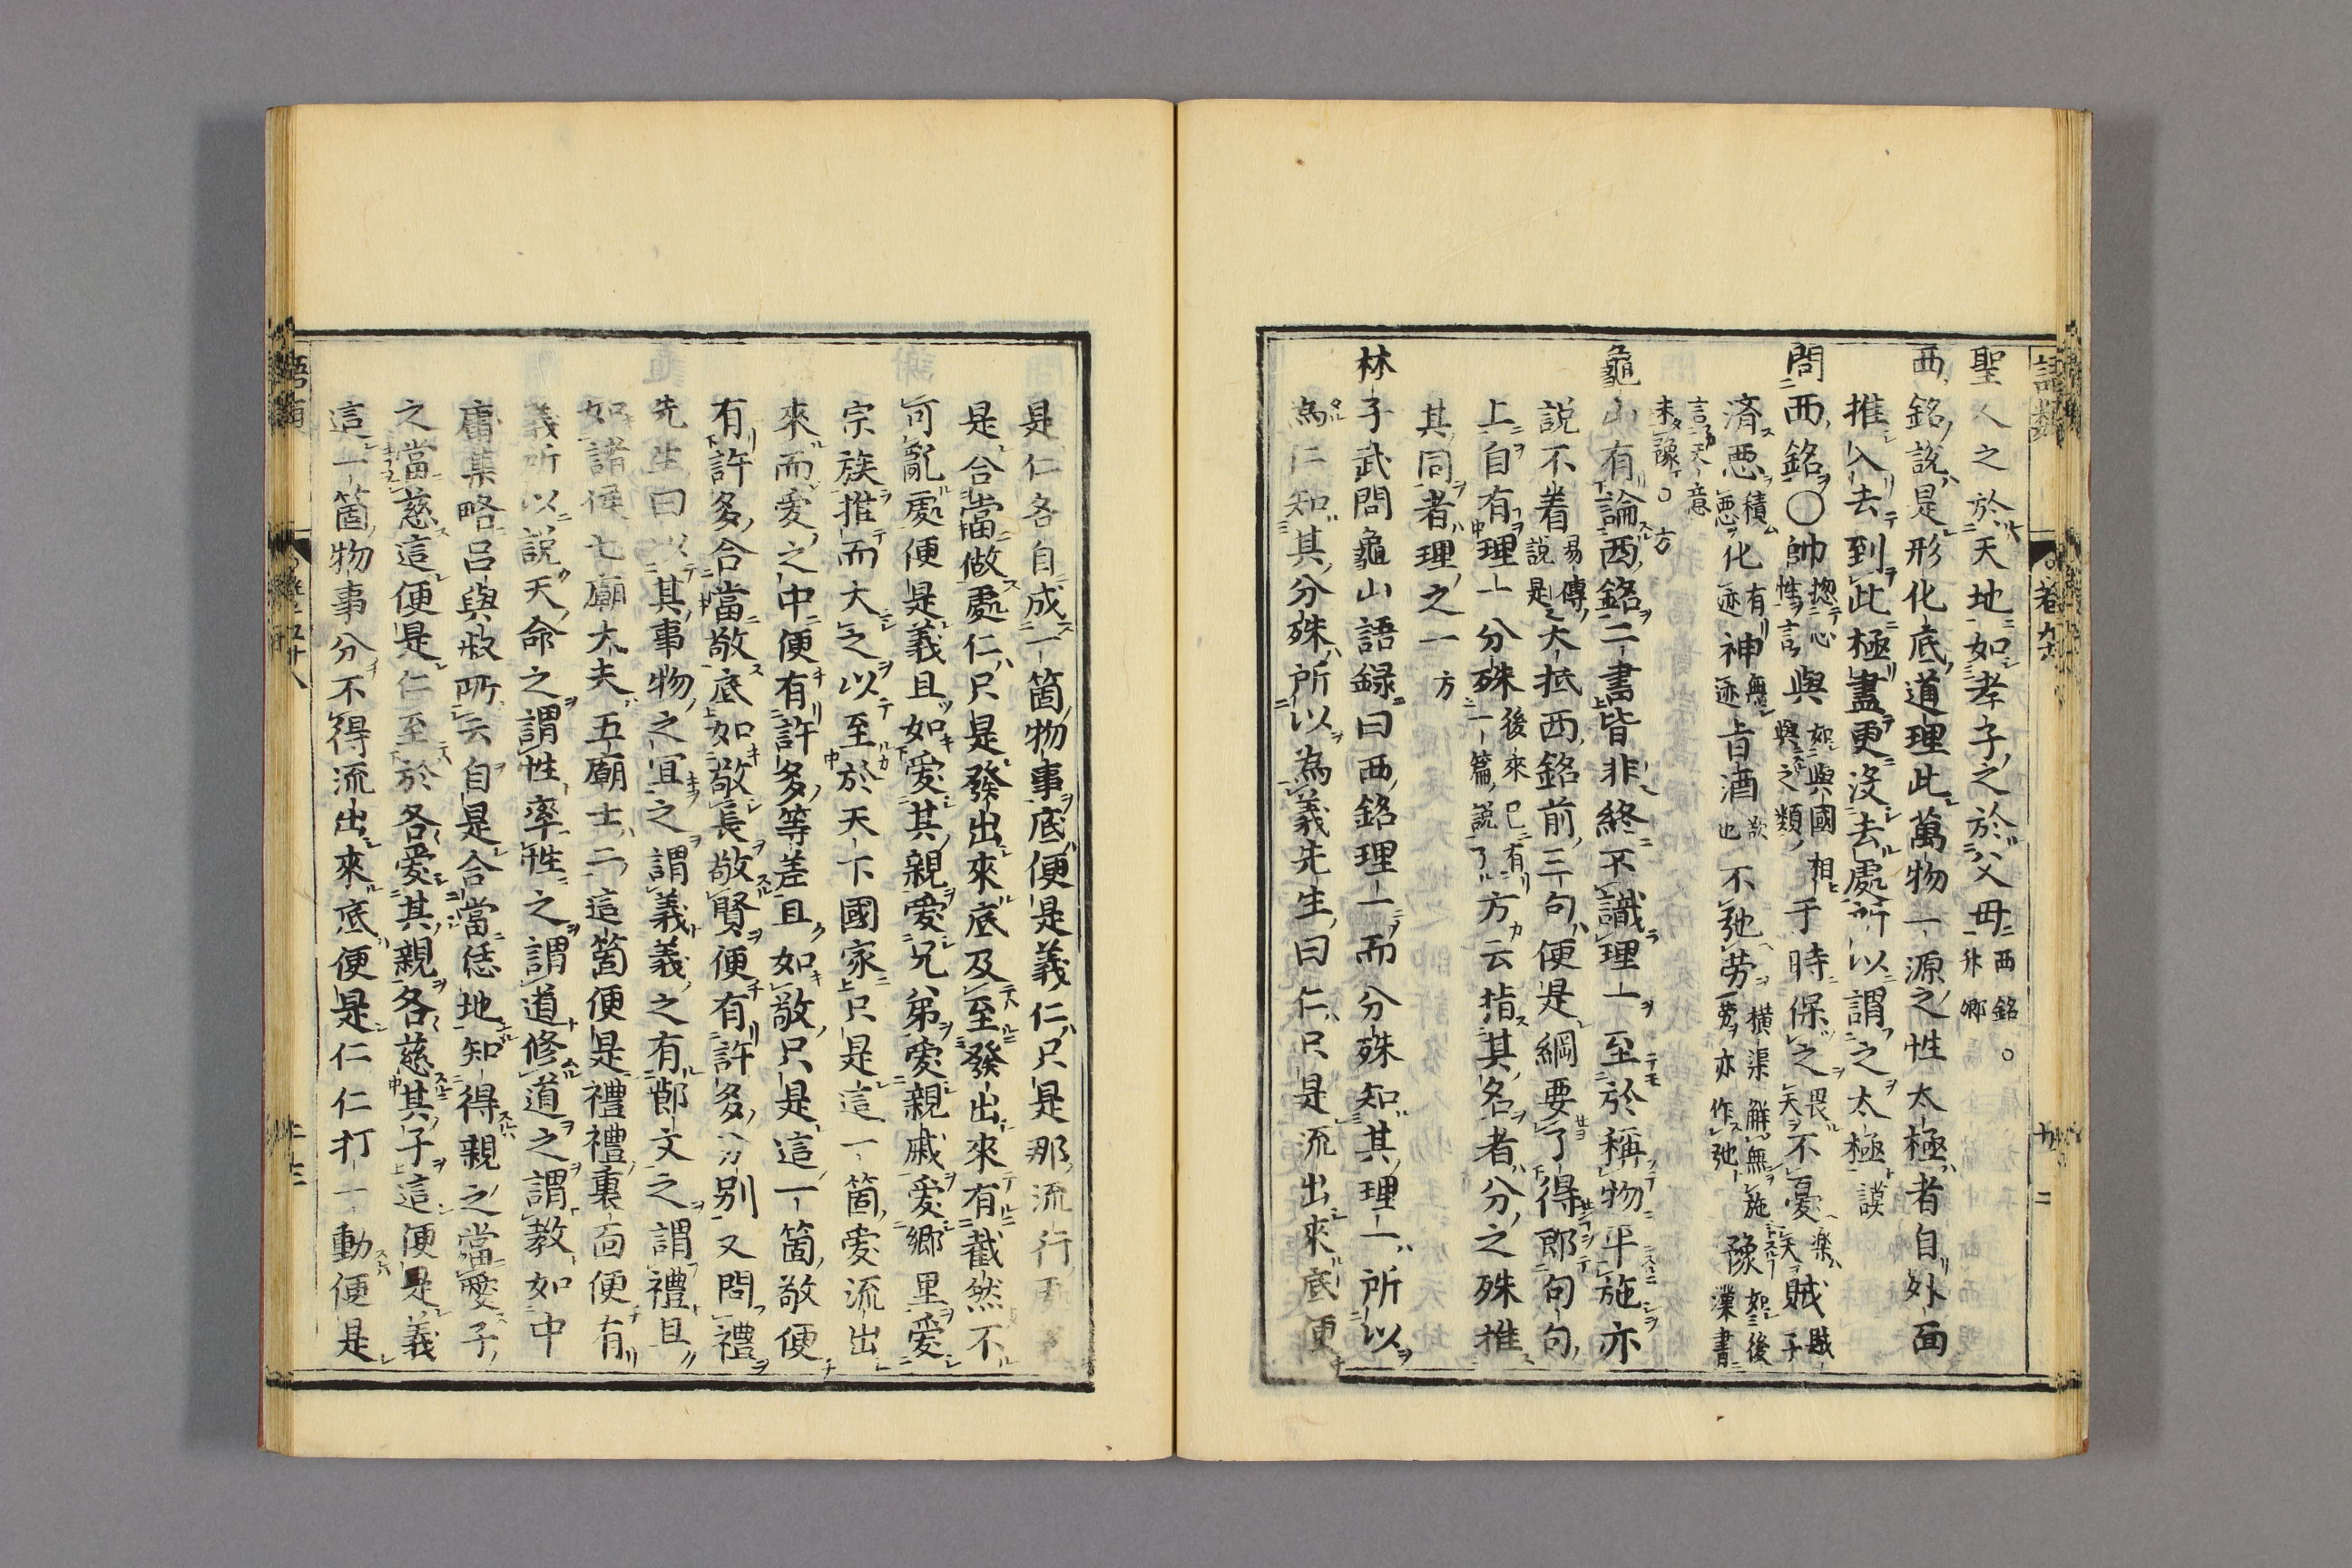 聖人之於天地如孝子之於父母西銘非卿。
西銘說是形化底道理此萬物一源之性太極者自外面
推入去到此極盡更沒去處所以謂之太極謨
問西銘〇帥惣心性言與如與國相與之類于時保之畏天不憂樂天賊賊子
濟惡積惡化有迹神無迹旨酒欲也不弛勞橫渠解無施勞亦作弛豫如後漢書
言天意未豫。方
龜山有論西銘二書皆非終不識理一至於稱物平施亦
說不着易傳說是大抵西銘前三句便是綱要了得郎句句
上自有理一分殊後來已有一篇說了方云指其名者分之殊推
其同者理之一方
林子武問龜山語録曰西銘理一而分殊知其理一所以
為仁知其分殊所以為義先生曰仁只是流出來底便
是仁各自成一箇物事底便是義仁只是那流行
是合當做處仁只是發出來底及至發出來有截然不
可亂處便是義且如愛其親愛兄弟愛親戚愛鄉里愛
宗族推而大之以至於天下國家只是這一箇愛流出
來而愛之中便有許多等差且如敬只是這一箇敬便
有許多合當敬底如敬長敬賢便有許多分别又問禮
先生曰以其事物之宜之謂義義之有節文之謂禮且
如諸侯七廟大夫五廟士二這箇便是禮禮裏面便有
義所以說天命之謂性率性之謂道修道之謂教如中
庸集略呂與叔所云自是合當恁地知得親之當愛子
之當慈這便是仁至於各愛其親各慈其子這便是義
這一箇物事分不得流出來底便是仁仁打一動便是